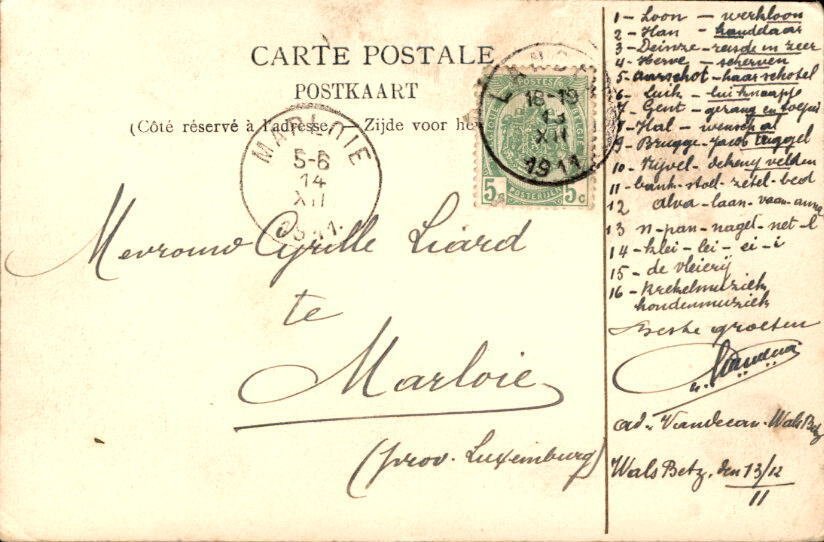 CARTE POSTALE
POSTKAART
(Côté réservé à l'adresse. — Zijde voor he
MARLOIE
5-6
14
XII
1911
LAND
18-19
13
XII
1911
POSTES
5c 5c
POSTERIJEN
Mevrouw Cyrille Liard
te
Marloie
(prov. Luxemburg)
1 - Loon - werkloon
2 - Han - handdaar
3 - Deinze - reisde in zeer
4 - Herve - scherven
5 - Aarschot - haarschotel
6 - Luik - luiknaapje
7 - Gent - gerang en
8 - Hal - wensch al
9 - Brugge - Jacob Brugge
10 - Nijvel - velden
11 - bank - stoel - zetel - bed
12 alva - laan - vaan - anna
13 n - pan - nagel - net - l
14 - klei - lei - ei - i
15 - de vleierij
16 - Krekelmuziek
hondenmuziek
Beste groeten
ad. Wals Betz
Wals Betz, den 13/12
11